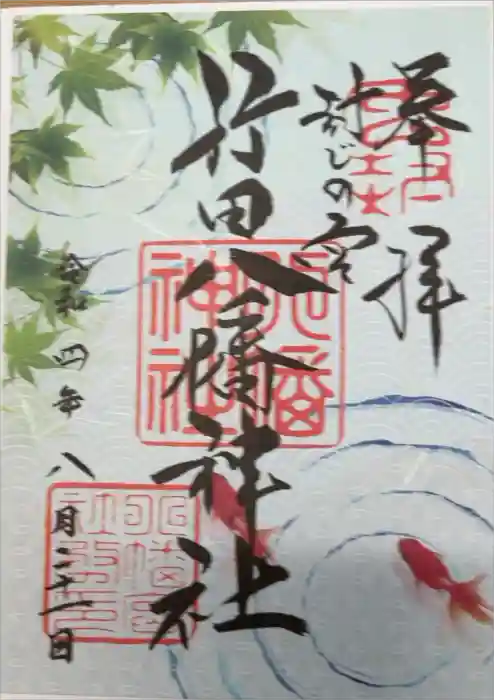 奉拝
封じの宮
行田八幡神社
令和四年八月二十一日
八幡
神社